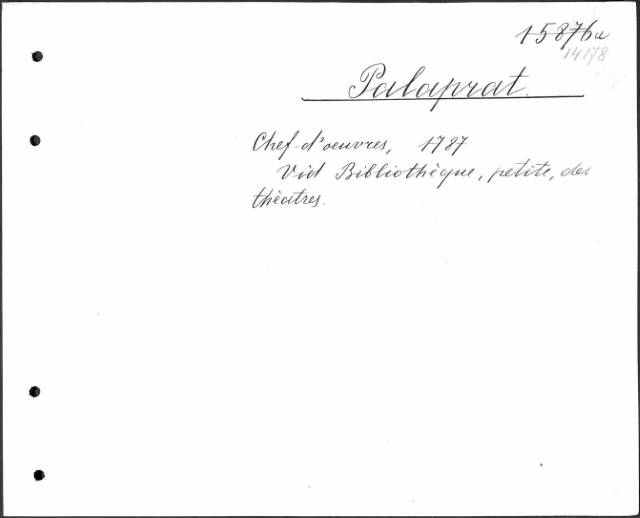 15876a
14178
Palaprat.
Chef-d'oeuvres, 1787
Vid Bibliothèque, petite, des
théatres.